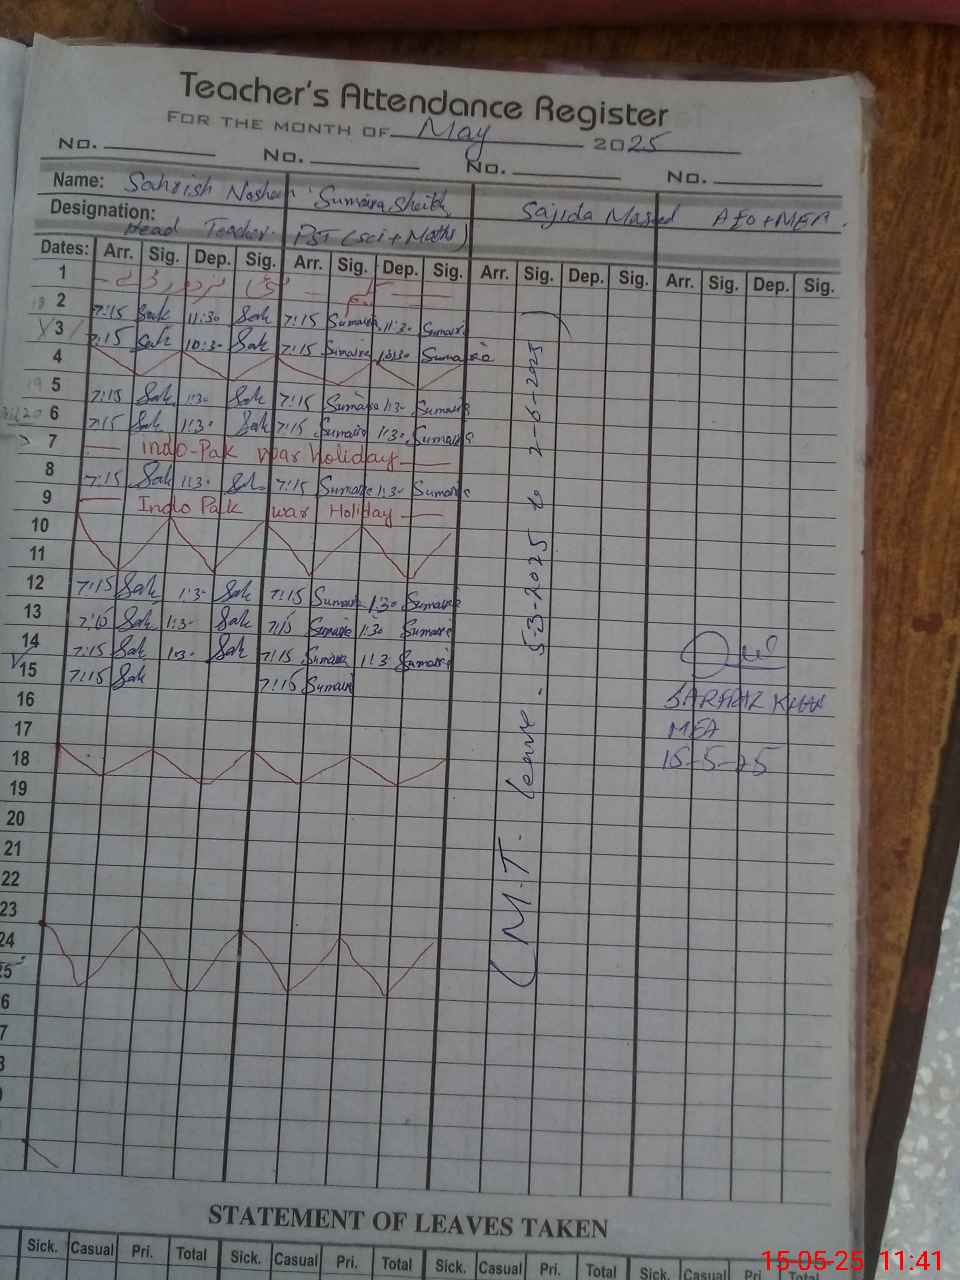 Teacher's Attendance Register
FOR THE MONTH OF May 2025
No. No. No. No.
Name: Sahrish Nosheen Sumaira Sheikh Sajida Masud AEO + MEA.
Designation: Head Teacher. PST (Sci + Maths)
Dates: Arr. Sig. Dep. Sig. Arr. Sig. Dep. Sig. Arr. Sig. Dep. Sig. Arr. Sig. Dep. Sig.
1
2 7:15 Sak 11:30 Sak 7:15 Sumaira 11:30 Sumaira
3 7:15 Sak 10:30 Sak 7:15 Sumaira 10:30 Sumaira
4
5 7:15 Sak 1:30 Sak 7:15 Sumaira 1:30 Sumaira
6 7:15 Sak 1:30 Sak 7:15 Sumaira 1:30 Sumaira
7 Indo-Pak war holiday
8 7:15 Sak 1:30 Sak 7:15 Sumaira 1:30 Sumaira
9 Indo Pak war Holiday
10
11
12 7:15 Sak 1:30 Sak 7:15 Sumaira 1:30 Sumaira
13 7:15 Sak 1:30 Sak 7:15 Sumaira 1:30 Sumaira
14 7:15 Sak 1:30 Sak 7:15 Sumaira 1:30 Sumaira
15 7:15 Sak 7:15 Sumaira
16
17
18
19
20
21
22
23
24
25
6
7
(M.T. leave. 5-3-2025 to 2-6-2025)
SARFRAZ KHAN
MEA
15-5-25
STATEMENT OF LEAVES TAKEN
Sick. Casual Pri. Total Sick. Casual Pri. Total Sick. Casual Pri. Total Sick. Casual Pri. Total
15-05-25 11:41